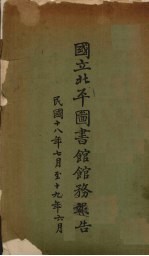 國立北平圖書館館務報告
民國十八年七月至十九年六月